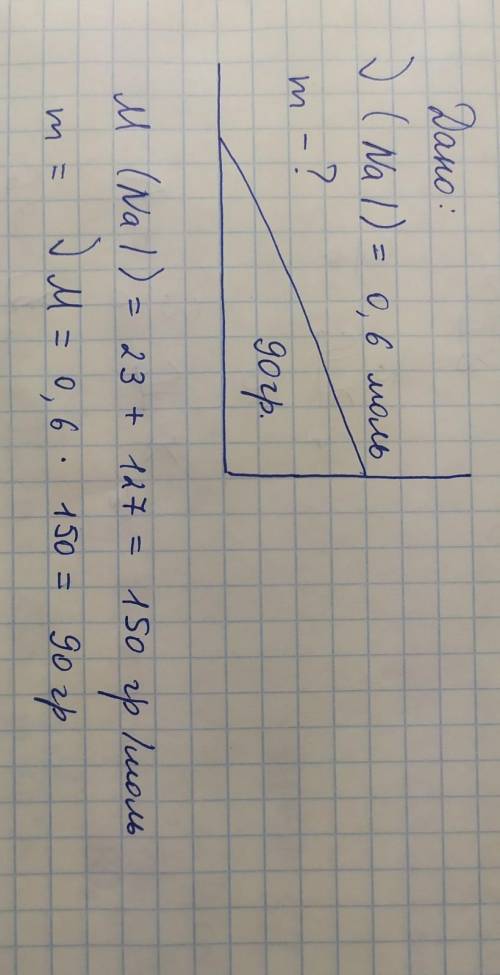 Дано:
ν (NaI) = 0,6 моль
m - ?
90гр.
M (NaI) = 23 + 127 = 150 гр/моль
m = ν M = 0,6 · 150 = 90гр